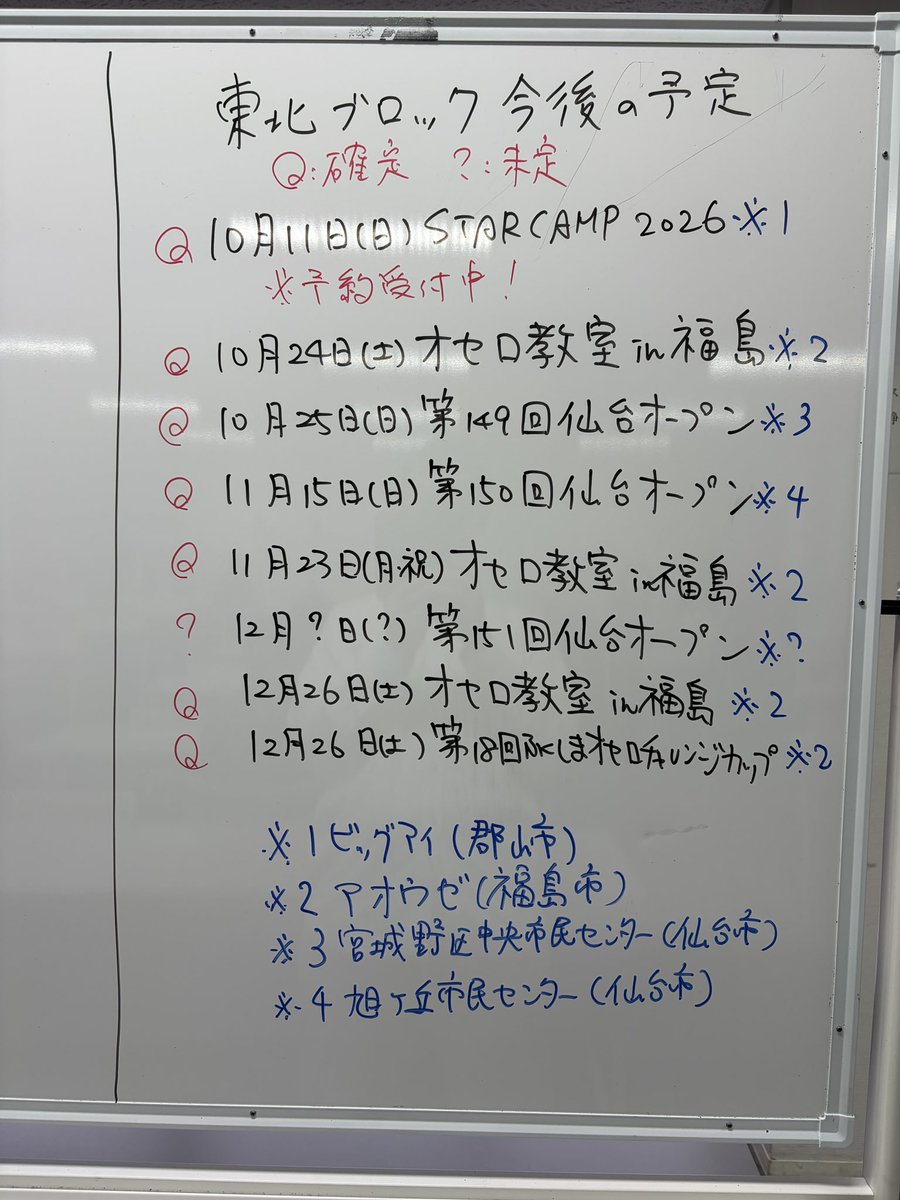 東北ブロック今後の予定
◎:確定 ?:未定
◎ 10月11日(日) STARCAMP 2026 ※1
※予約受付中!
◎ 10月24日(土) オセロ教室in福島 ※2
◎ 10月25日(日) 第149回仙台オープン ※3
◎ 11月15日(日) 第150回仙台オープン ※4
◎ 11月23日(月・祝) オセロ教室in福島 ※2
? 12月?日(?) 第151回仙台オープン ※?
◎ 12月26日(土) オセロ教室in福島 ※2
◎ 12月26日(土) 第18回ふくしまオセロチャレンジカップ ※2
※1 ビッグアイ(郡山市)
※2 アオウゼ(福島市)
※3 宮城野区中央市民センター(仙台市)
※4 旭ヶ丘市民センター(仙台市)